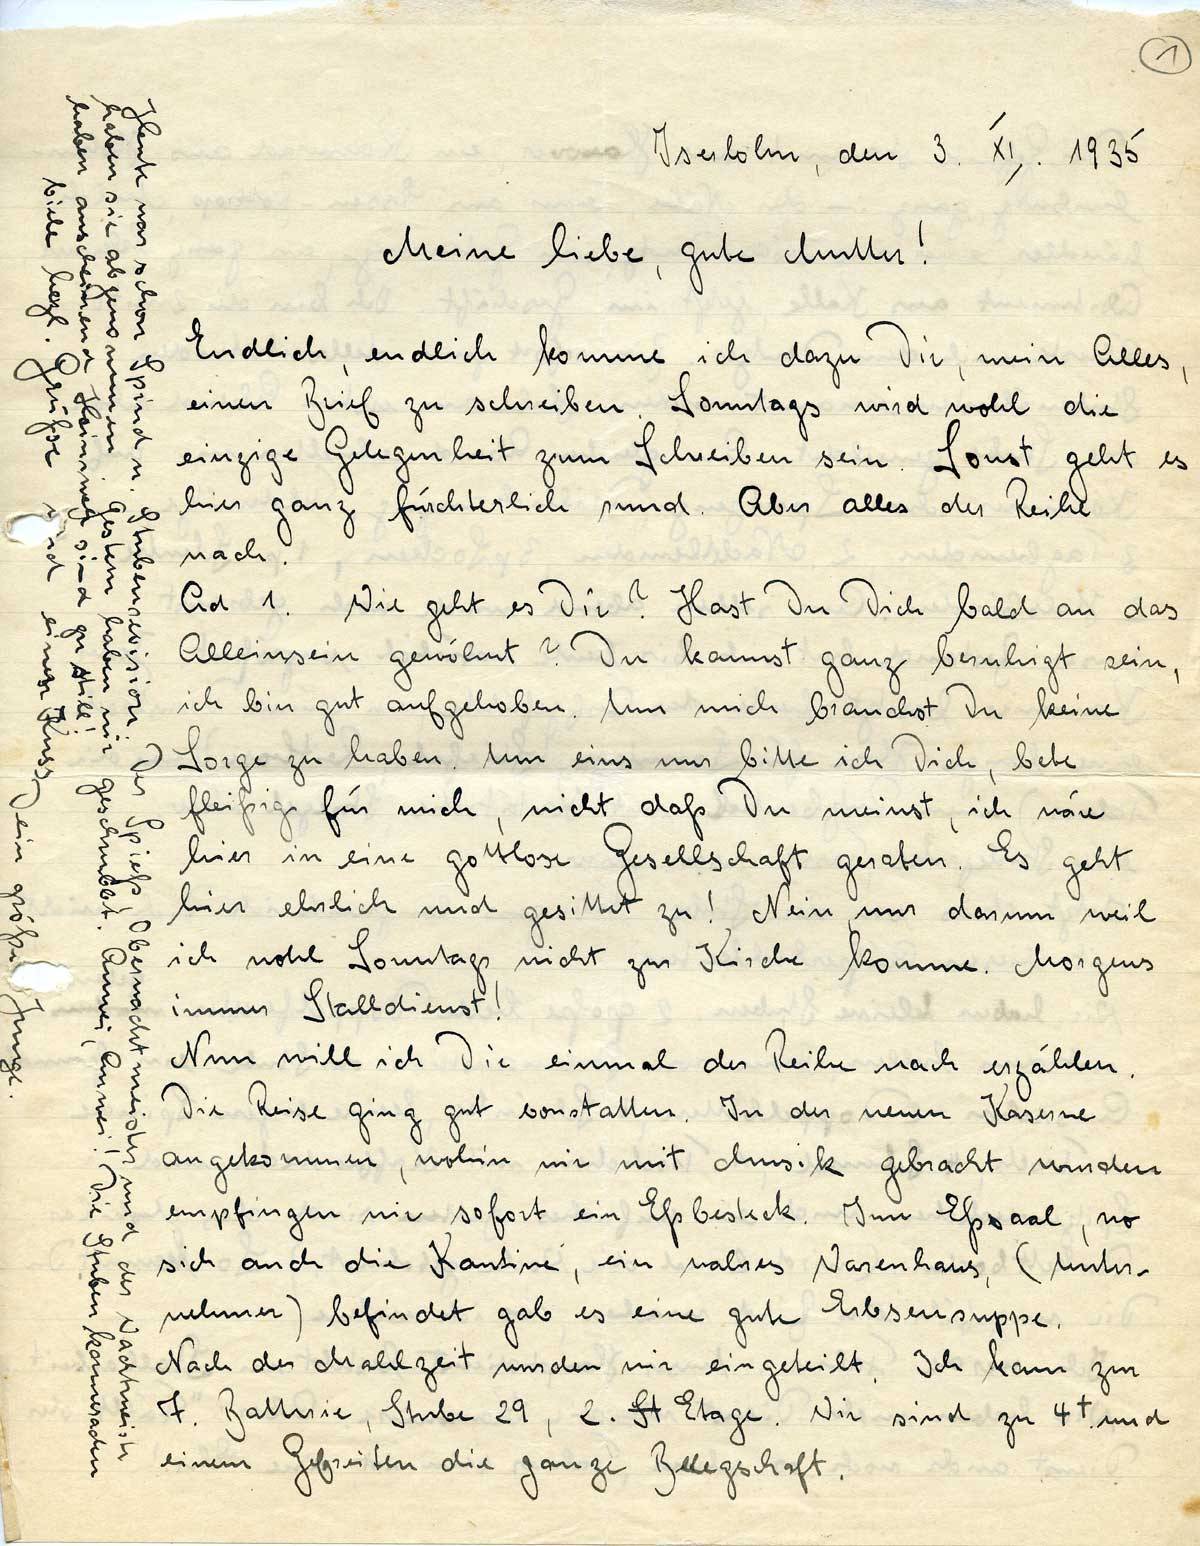 1
Iserlohn, den 3. XI. 1935
Meine liebe, gute Mutter!
Endlich, endlich komme ich dazu Dir, mein Alles,
einen Brief zu schreiben. Sonntags wird wohl die
einzige Gelegenheit zum Schreiben sein. Sonst geht es
hier ganz fürchterlich rund. Aber alles der Reihe
nach.
Ad 1. Wie geht es Dir? Hast Du Dich bald an das
Alleinsein gewöhnt? Du kannst ganz beruhigt sein,
ich bin gut aufgehoben. Um mich brauchst Du keine
Sorge zu haben. Um eins nur bitte ich Dich, bete
fleißig für mich, nicht daß Du meinst, ich wäre
hier in eine gottlose Gesellschaft geraten. Es geht
hier ehrlich und gesittet zu! Nein nur darum weil
ich wohl Sonntags nicht zur Kirche komme. Morgens
immer Stalldienst!
Nun will ich Dir einmal der Reihe nach erzählen.
Die Reise ging gut vonstatten. In der neuen Kaserne
angekommen, wohin wir mit Musik gebracht wurden
empfingen wir sofort ein Eßbesteck. Im Eßsaal, wo
sich auch die Kantine, ein wahres Warenhaus, (Unter-
nehmer) befindet gab es eine gute Erbsensuppe.
Nach der Mahlzeit wurden wir eingeteilt. Ich kam zur
7. Batterie, Stube 29, 2. St Etage. Wir sind zu 4t und
einem Gefreiten die ganze Belegschaft.
Heute war schon Spind u. Stubenrevision. Der Spieß, Oberwachtmeister und der Wachtmeister
haben sie abgenommen. Gestern haben wir geschrubbt. Auwei, Auwei! Die Stubenkameraden
haben anscheinend Heimweh, sind zu still!
Viele herzl. Grüße und einen Kuss Dein großer Junge.